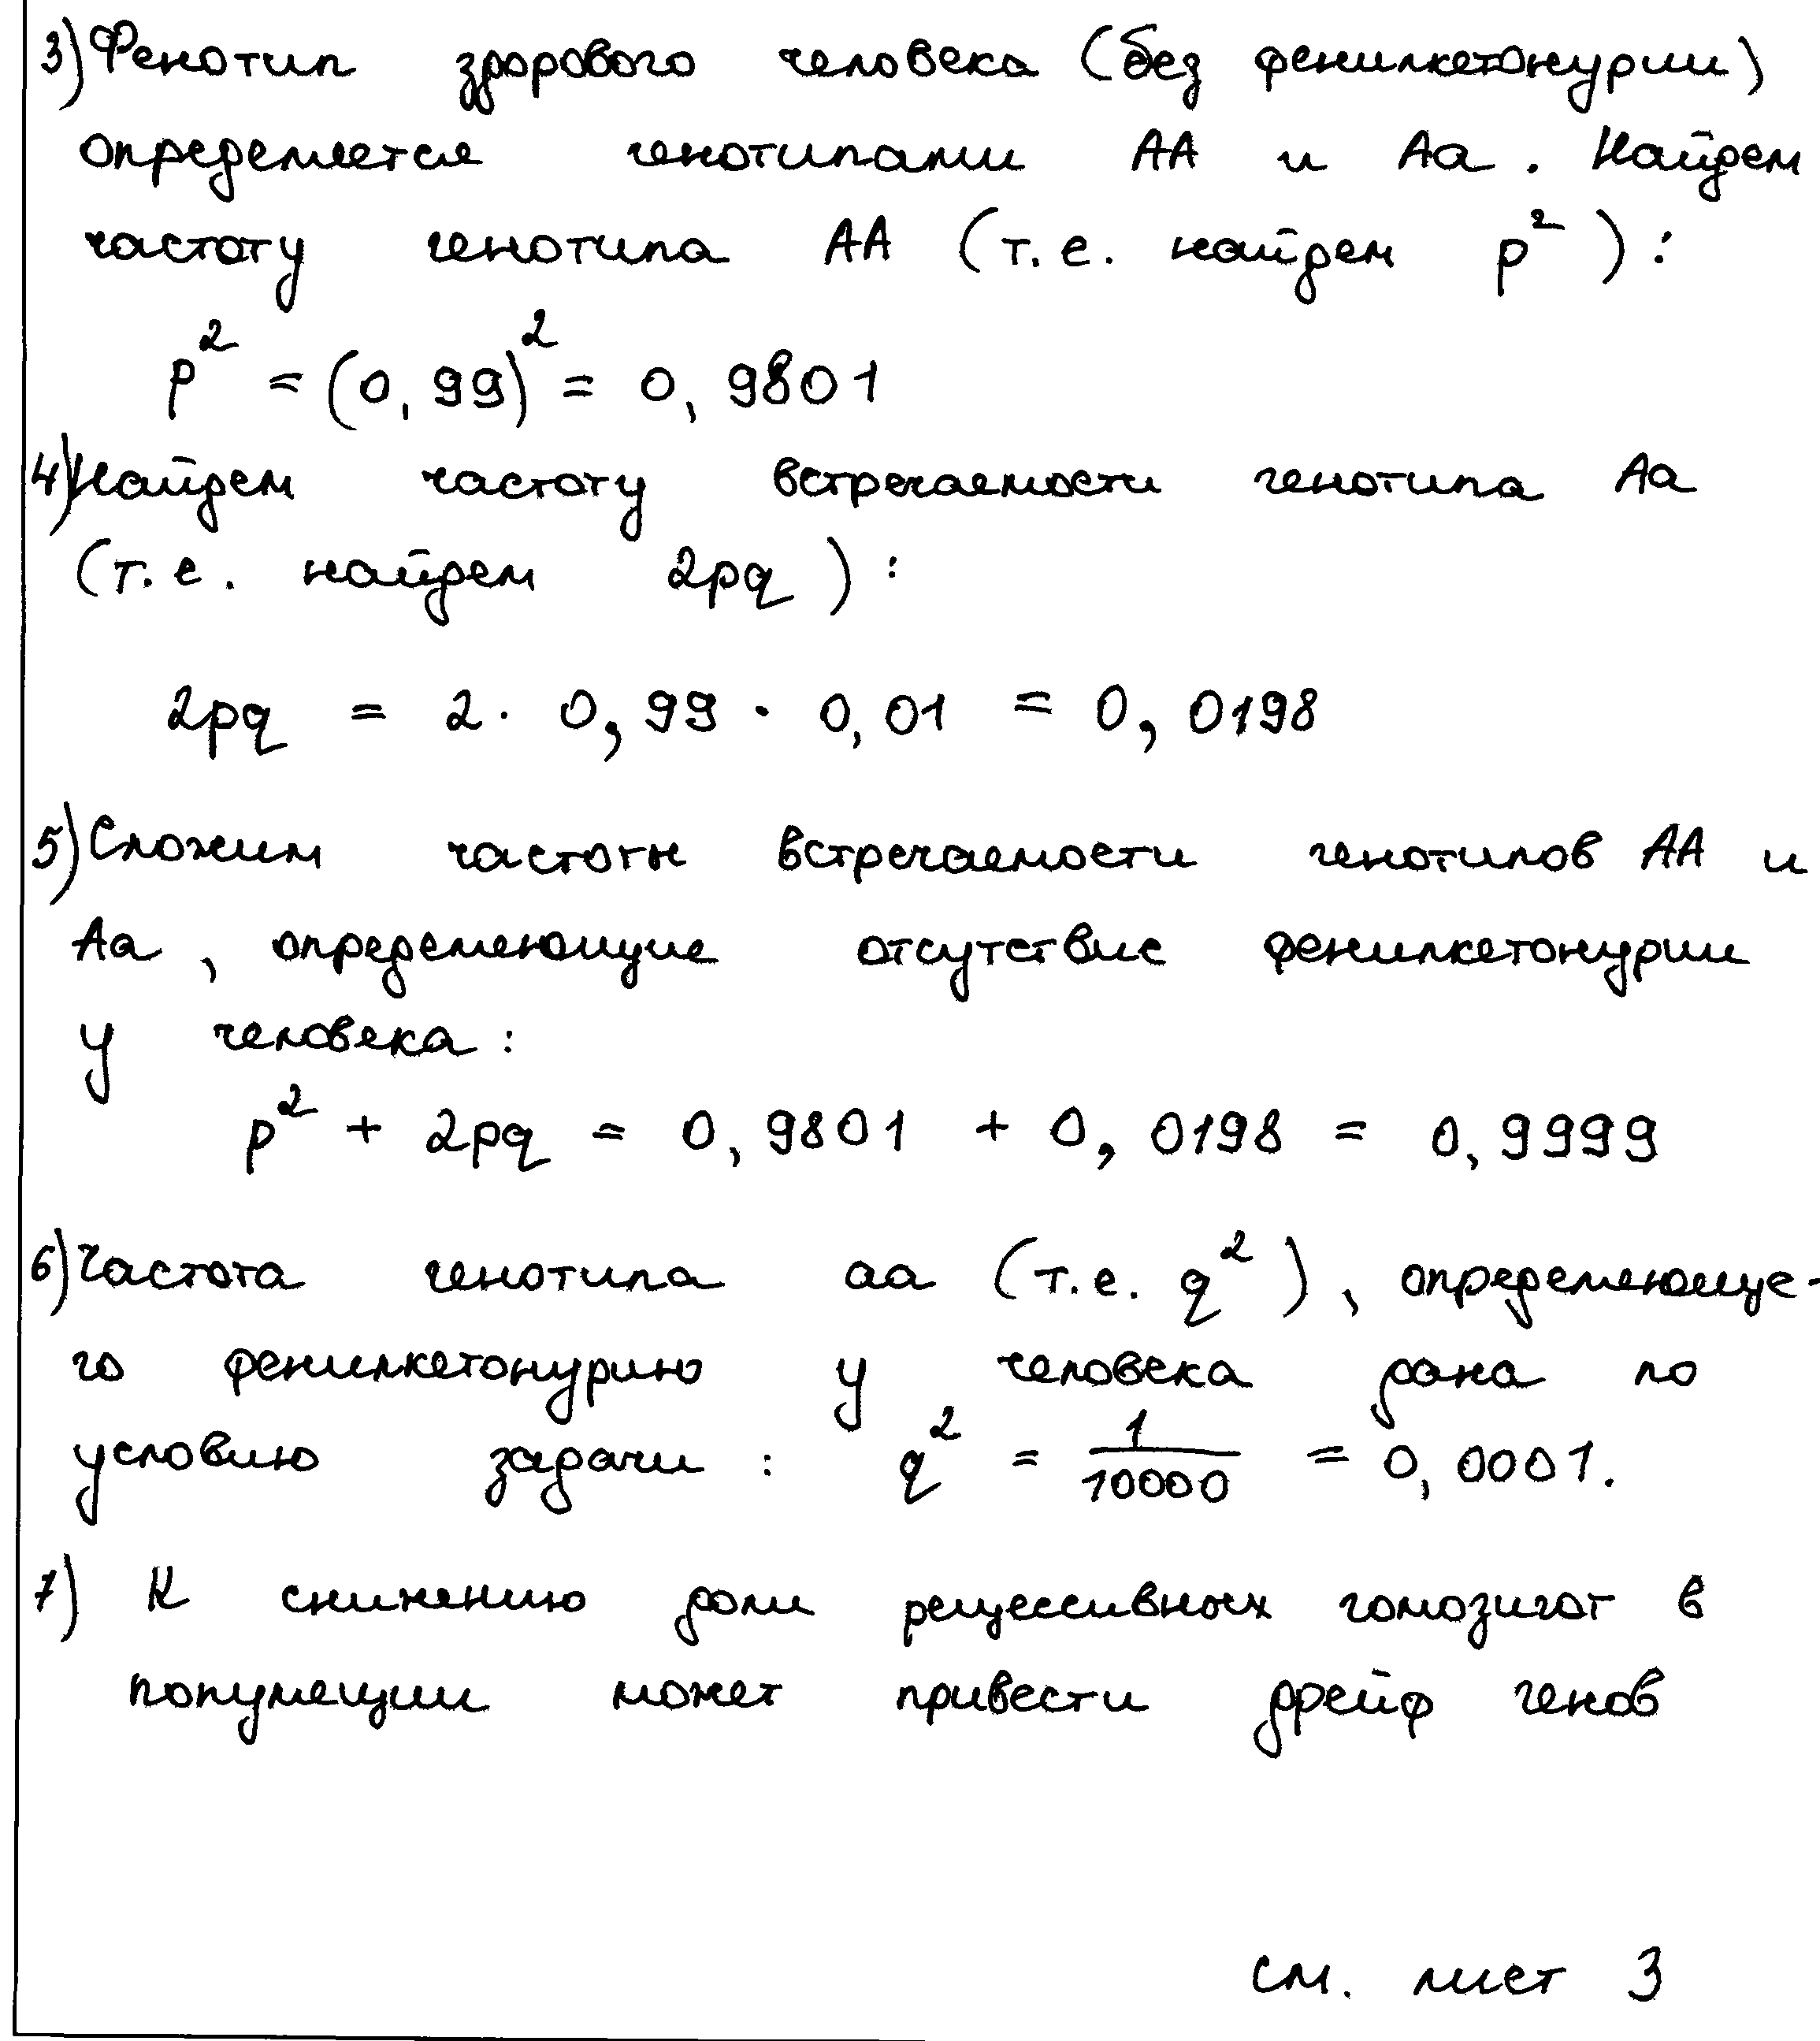 3) Фенотип здорового человека (без фенилкетонурии)
определяется генотипами АА и Аа. Найдем
частоту генотипа АА (т.е. найдем p²):
p² = (0,99)² = 0,9801
4) Найдем частоту встречаемости генотипа Аа
(т.е. найдем 2pq):
2pq = 2 · 0,99 · 0,01 = 0,0198
5) Сложим частоты встречаемости генотипов АА и
Аа, определяющие отсутствие фенилкетонурии
у человека:
p² + 2pq = 0,9801 + 0,0198 = 0,9999
6) Частота генотипа аа (т.е. q²), определяюще-
го фенилкетонурию у человека дана по
условию задачи: q² = 1/10000 = 0,0001.
7) К снижению доли рецессивных гомозигот в
популяции может привести дрейф генов
см. лист 3